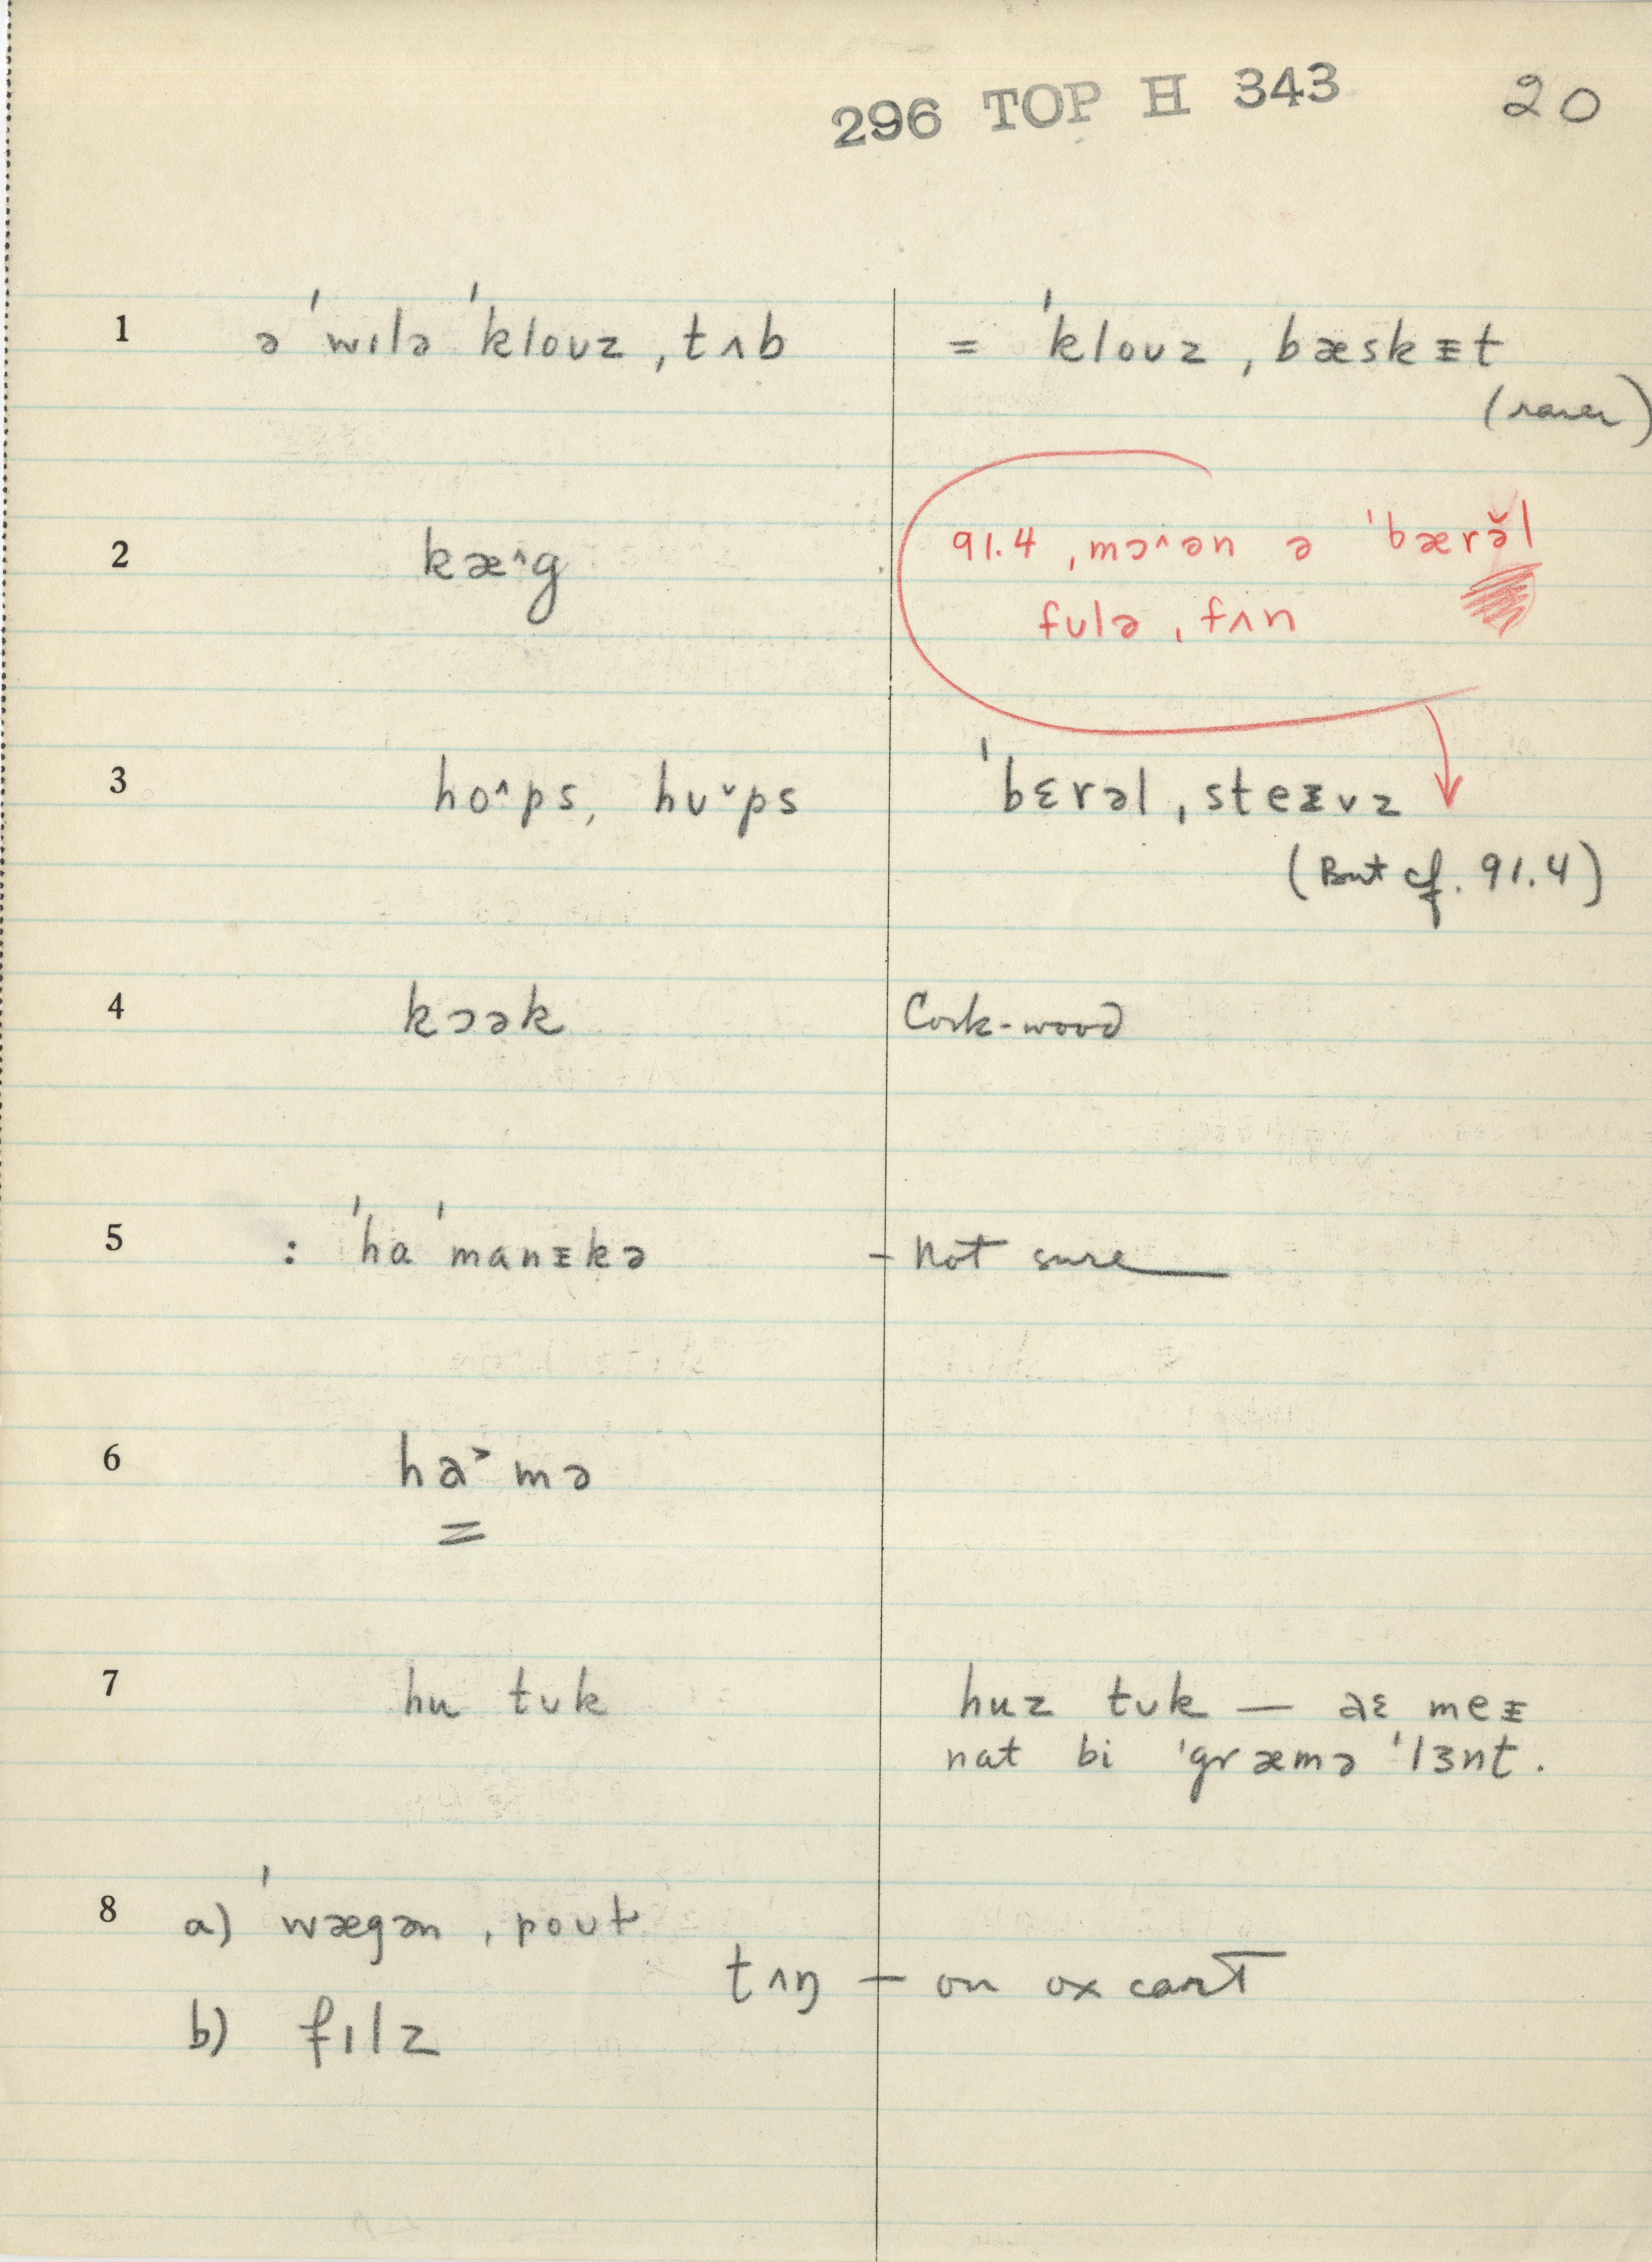 296 TOP H 343 20
1 ə ˈwɪlə ˈkloʊz ˌtʌb = ˈkloʊz ˌbæskᵻt
(rarer)
2 kæ^g 91.4 ˌmɔ^ən ə ˈbærə̆l
fʊlə ˌfʌn
3 ho^ps, hʊˇps ˈbɛrəl ˌsteᵻvz
(But cf. 91.4)
4 kɔək Cork-wood
5 : ˈhɑ ˈmɑnᵻkə – not sure
6 ha˃mə
7 hu tʊk huz tʊk — aɛ meᵻ
nɑt bi ˈgræmə ˈlɜnt.
8 a) ˈwægən ˌpoʊt
tʌŋ — on ox cart
b) fɪlz